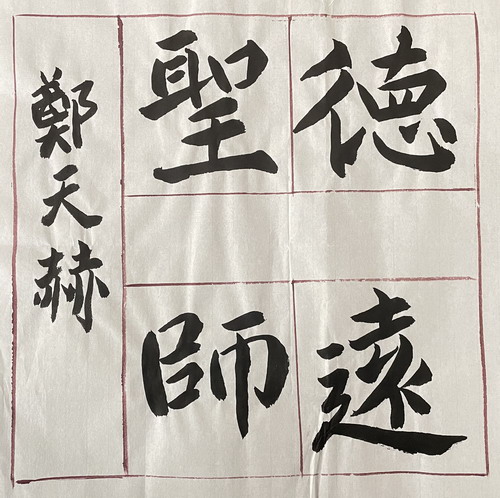 德遠
聖師
鄭天赫